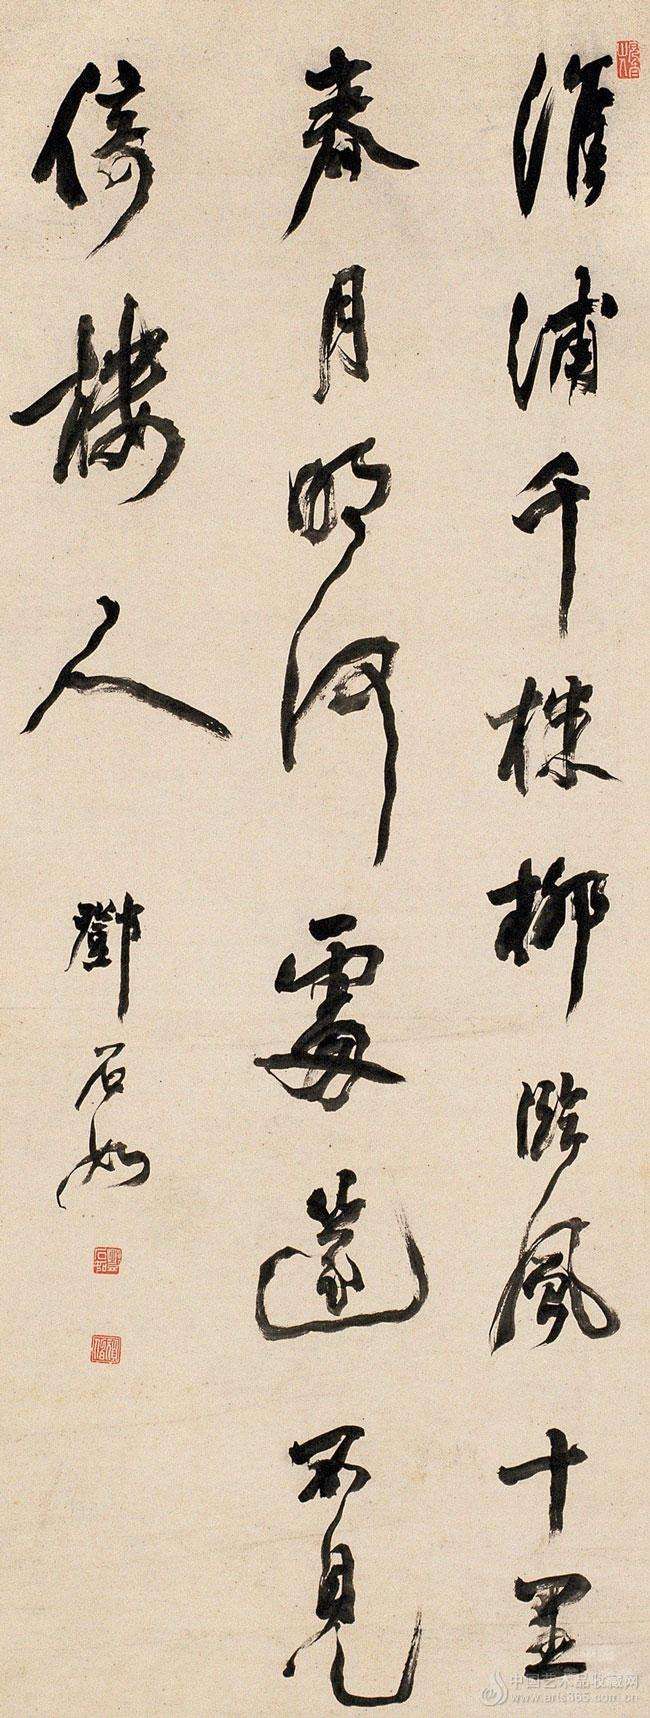 淮浦千株柳臨風十里
春月明何處篴不見
倚樓人
鄧石如
中国艺术品收藏网
www.arts365.com.cn